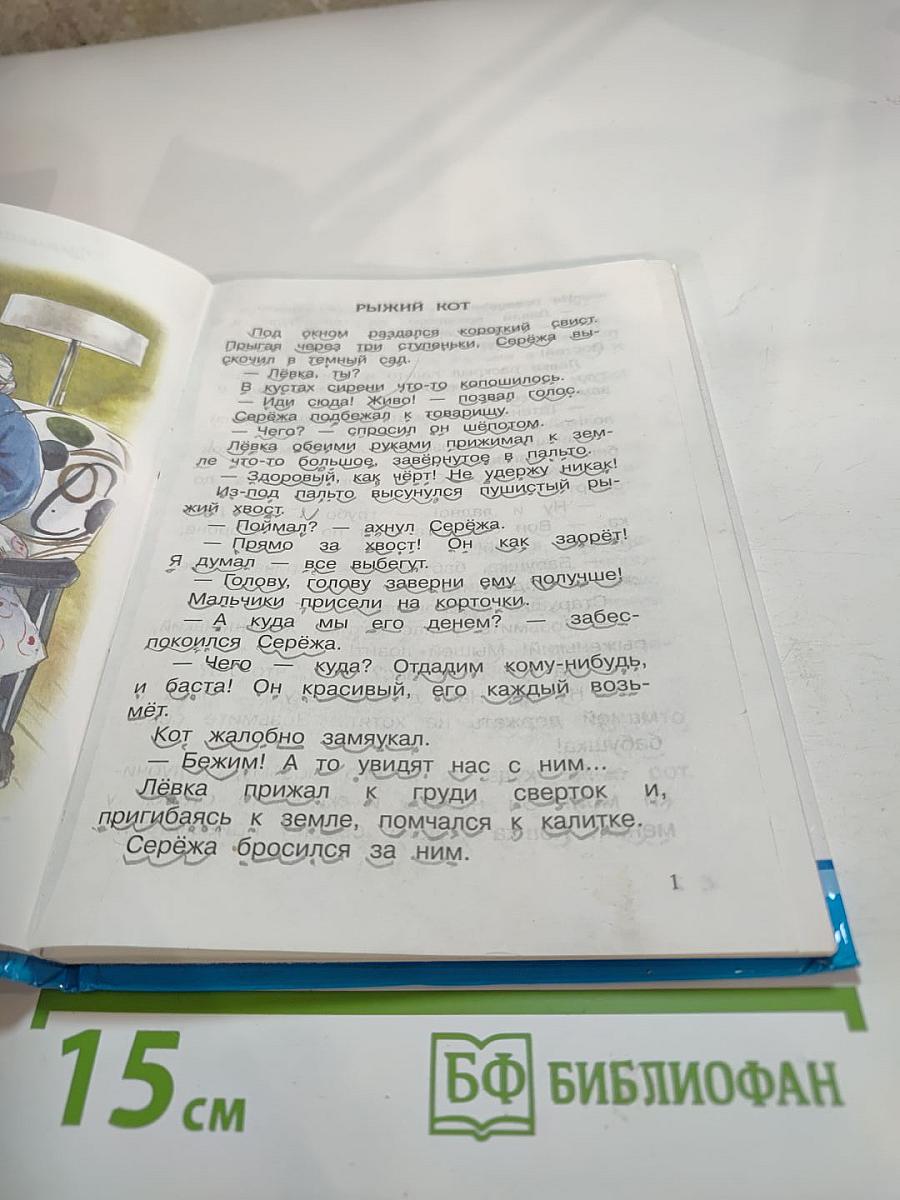 РЫЖИЙ КОТ
Под окном раздался короткий свист.
Прыгая через три ступеньки, Серёжа вы-
скочил в темный сад.
— Лёвка, ты?
В кустах сирени что-то копошилось.
— Иди сюда! Живо! — позвал голос.
Серёжа подбежал к товарищу.
— Чего? — спросил он шёпотом.
Лёвка обеими руками прижимал к зем-
ле что-то большое, завёрнутое в пальто.
— Здоровый, как чёрт! Не удержу никак!
Из-под пальто высунулся пушистый ры-
жий хвост.
— Поймал? — ахнул Серёжа.
— Прямо за хвост! Он как заорёт!
Я думал — все выбегут.
— Голову, голову заверни ему получше!
Мальчики присели на корточки.
— А куда мы его денем? — забес-
покоился Серёжа.
— Чего — куда? Отдадим кому-нибудь,
и баста! Он красивый, его каждый возь-
мёт.
Кот жалобно замяукал.
— Бежим! А то увидят нас с ним...
Лёвка прижал к груди сверток и,
пригибаясь к земле, помчался к калитке.
Серёжа бросился за ним.
1
15 см
БФ БИБЛИОФАН